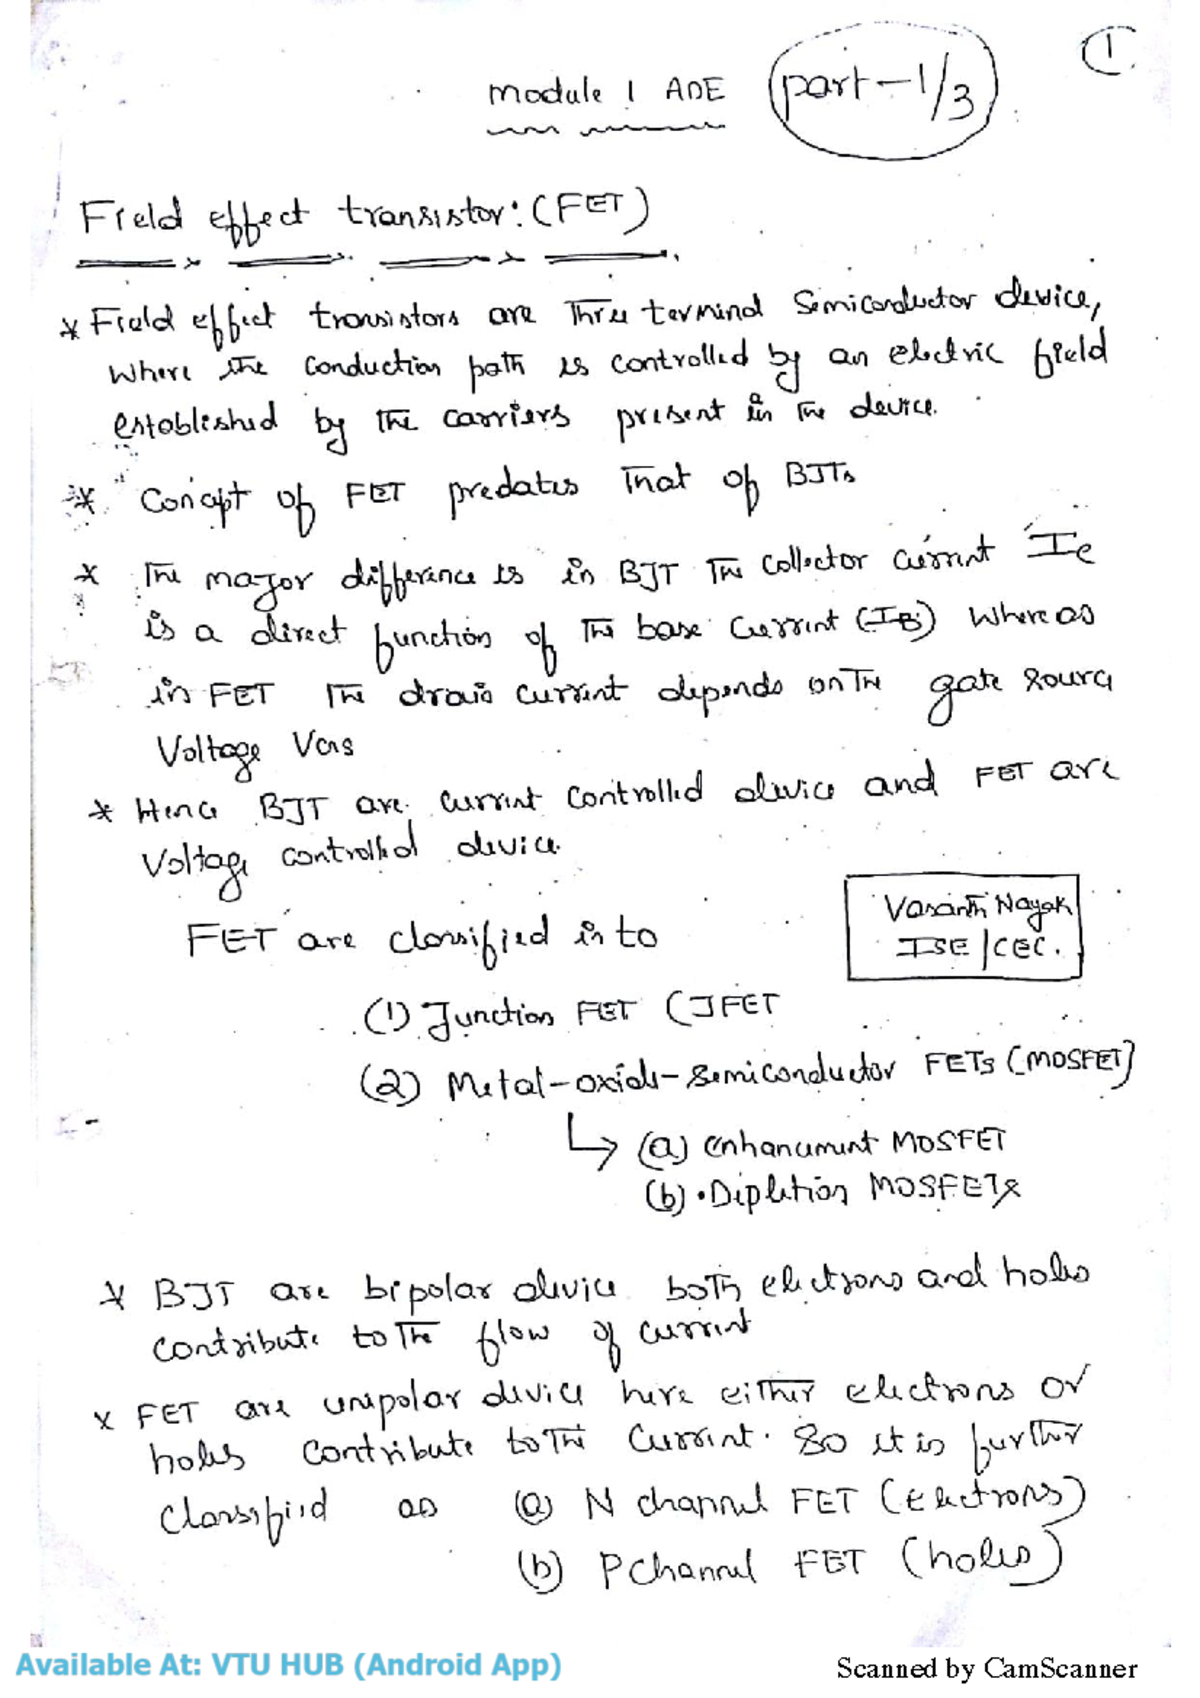 1
Module 1 ADE
part-1/3
Field effect transistor:(FET)
* Field effect transistors are Three terminal Semiconductor device,
Where the conduction path is controlled by an electric field
established by the carriers present in the device.
* Concept of FET predates that of BJTs
* The major difference is in BJT The collector current Ic
is a direct function of The base current (IB) Whereas
in FET The drain current depends on The gate source
Voltage VGS
* Hence BJT are current controlled device and FET are
Voltage controlled device.
Vasanth Nayak
ISE/CEC.
FET are classified in to
(1) Junction FET (JFET
(2) Metal-oxide-semiconductor FETs (MOSFET)
↳ (a) enhancement MOSFET
(b) Depletion MOSFETs
* BJT are bipolar device both electrons and holes
contribute to The flow of current
* FET are unipolar device here either electrons or
holes contribute to The current. So it is further
classified as (a) N channel FET (electrons)
(b) P channel FET (holes)
Available At: VTU HUB (Android App)
Scanned by CamScanner